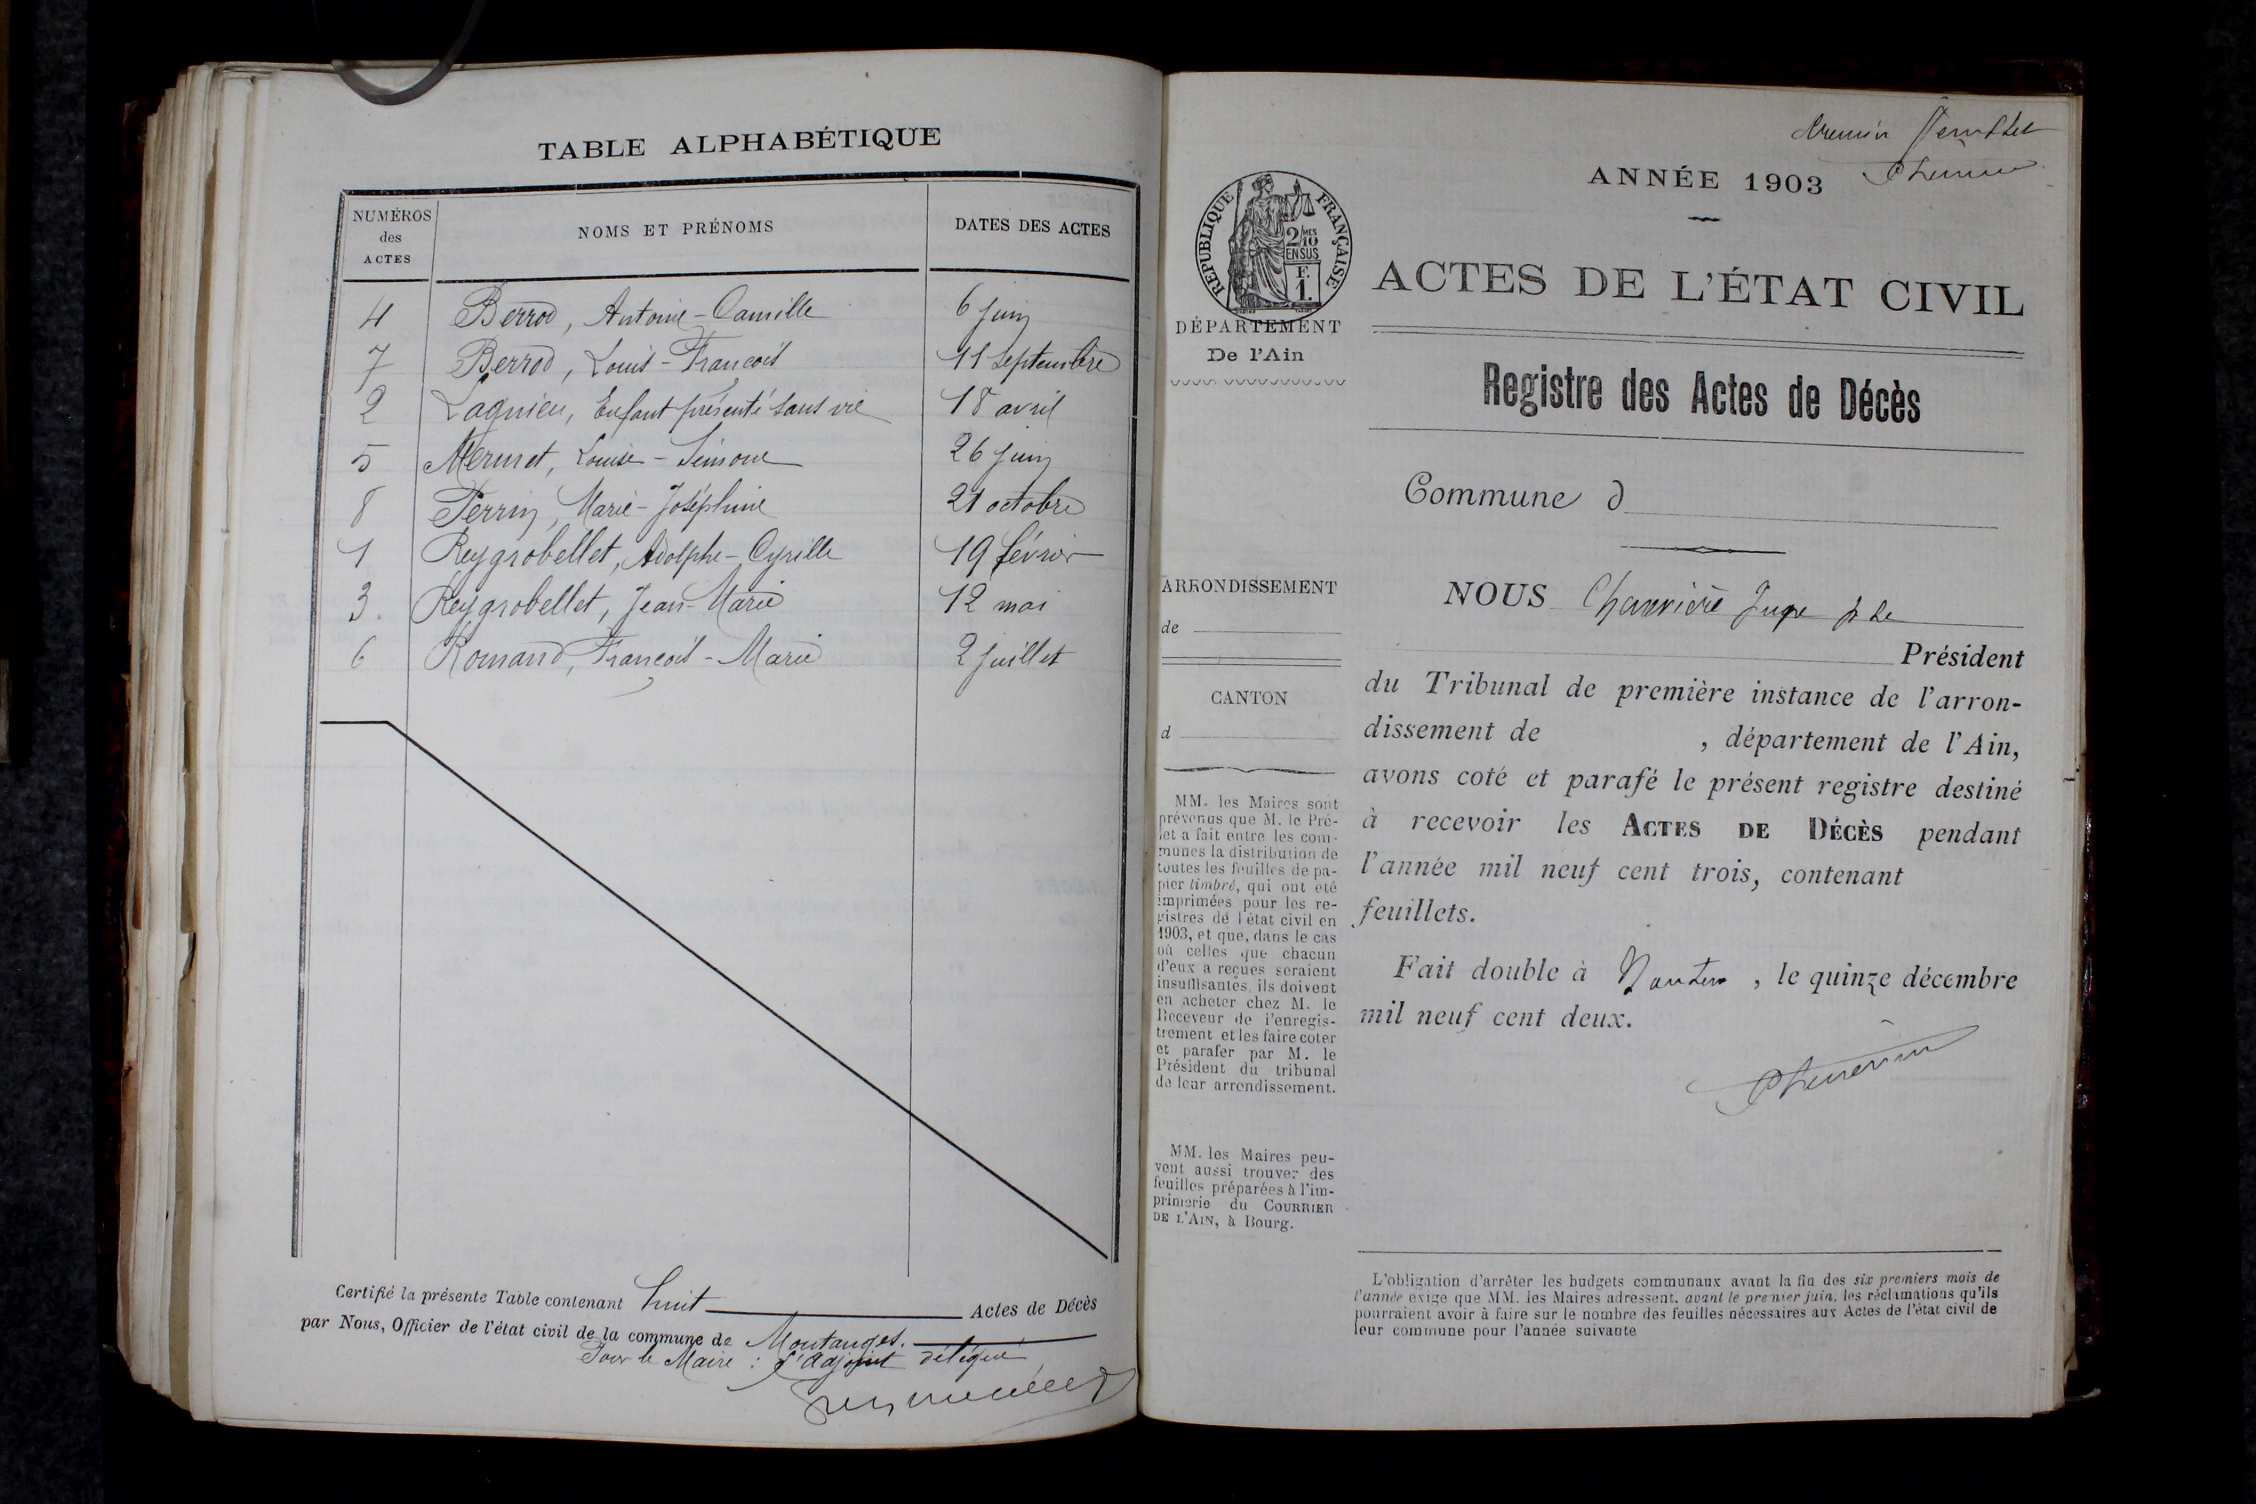 TABLE ALPHABÉTIQUE
NUMÉROS
des
ACTES
NOMS ET PRÉNOMS
DATES DES ACTES
4 Berrod, Antoine-Camille 6 juin
7 Berrod, Louis-François 11 septembre
2 Lagnieu, Enfant présenté sans vie 18 avril
5 Mermet, Louise-Simone 26 juin
8 Perrin, Marie-Joséphine 21 octobre
1 Reygrobellet, Adolphe-Cyrille 19 février
3. Reygrobellet, Jean-Marie 12 mai
6 Romand, François-Marie 2 juillet
Certifié la présente Table contenant huit Actes de Décès
par Nous, Officier de l'état civil de la commune de Montanges.
Pour le Maire : L'adjoint délégué
premier
ANNÉE 1903
RÉPUBLIQUE FRANÇAISE
2/10 MES
EN SUS
F.
1.
DÉPARTEMENT
De l'Ain
ACTES DE L'ÉTAT CIVIL
Registre des Actes de Décès
Commune d
ARRONDISSEMENT
de
CANTON
d
MM. les Maires sont
prévenus que M. le Pré-
fet a fait entre les com-
munes la distribution de
toutes les feuilles de pa-
pier timbré, qui ont été
imprimées pour les re-
gistres de l'état civil en
1903, et que, dans le cas
où celles que chacun
d'eux a reçues seraient
insuffisantes, ils doivent
en acheter chez M. le
Receveur de l'enregis-
trement et les faire coter
et parafer par M. le
Président du tribunal
de leur arrondissement.
MM. les Maires peu-
vent aussi trouver des
feuilles préparées à l'im-
primerie du COURRIER
DE L'AIN, à Bourg.
NOUS Juge
Président
du Tribunal de première instance de l'arron-
dissement de , département de l'Ain,
avons coté et parafé le présent registre destiné
à recevoir les ACTES DE DÉCÈS pendant
l'année mil neuf cent trois, contenant
feuillets.
Fait double à Nantua, le quinze décembre
mil neuf cent deux.
L'obligation d'arrêter les budgets communaux avant la fin des six premiers mois de
l'année exige que MM. les Maires adressent, avant le premier juin, les réclamations qu'ils
pourraient avoir à faire sur le nombre des feuilles nécessaires aux Actes de l'état civil de
leur commune pour l'année suivante